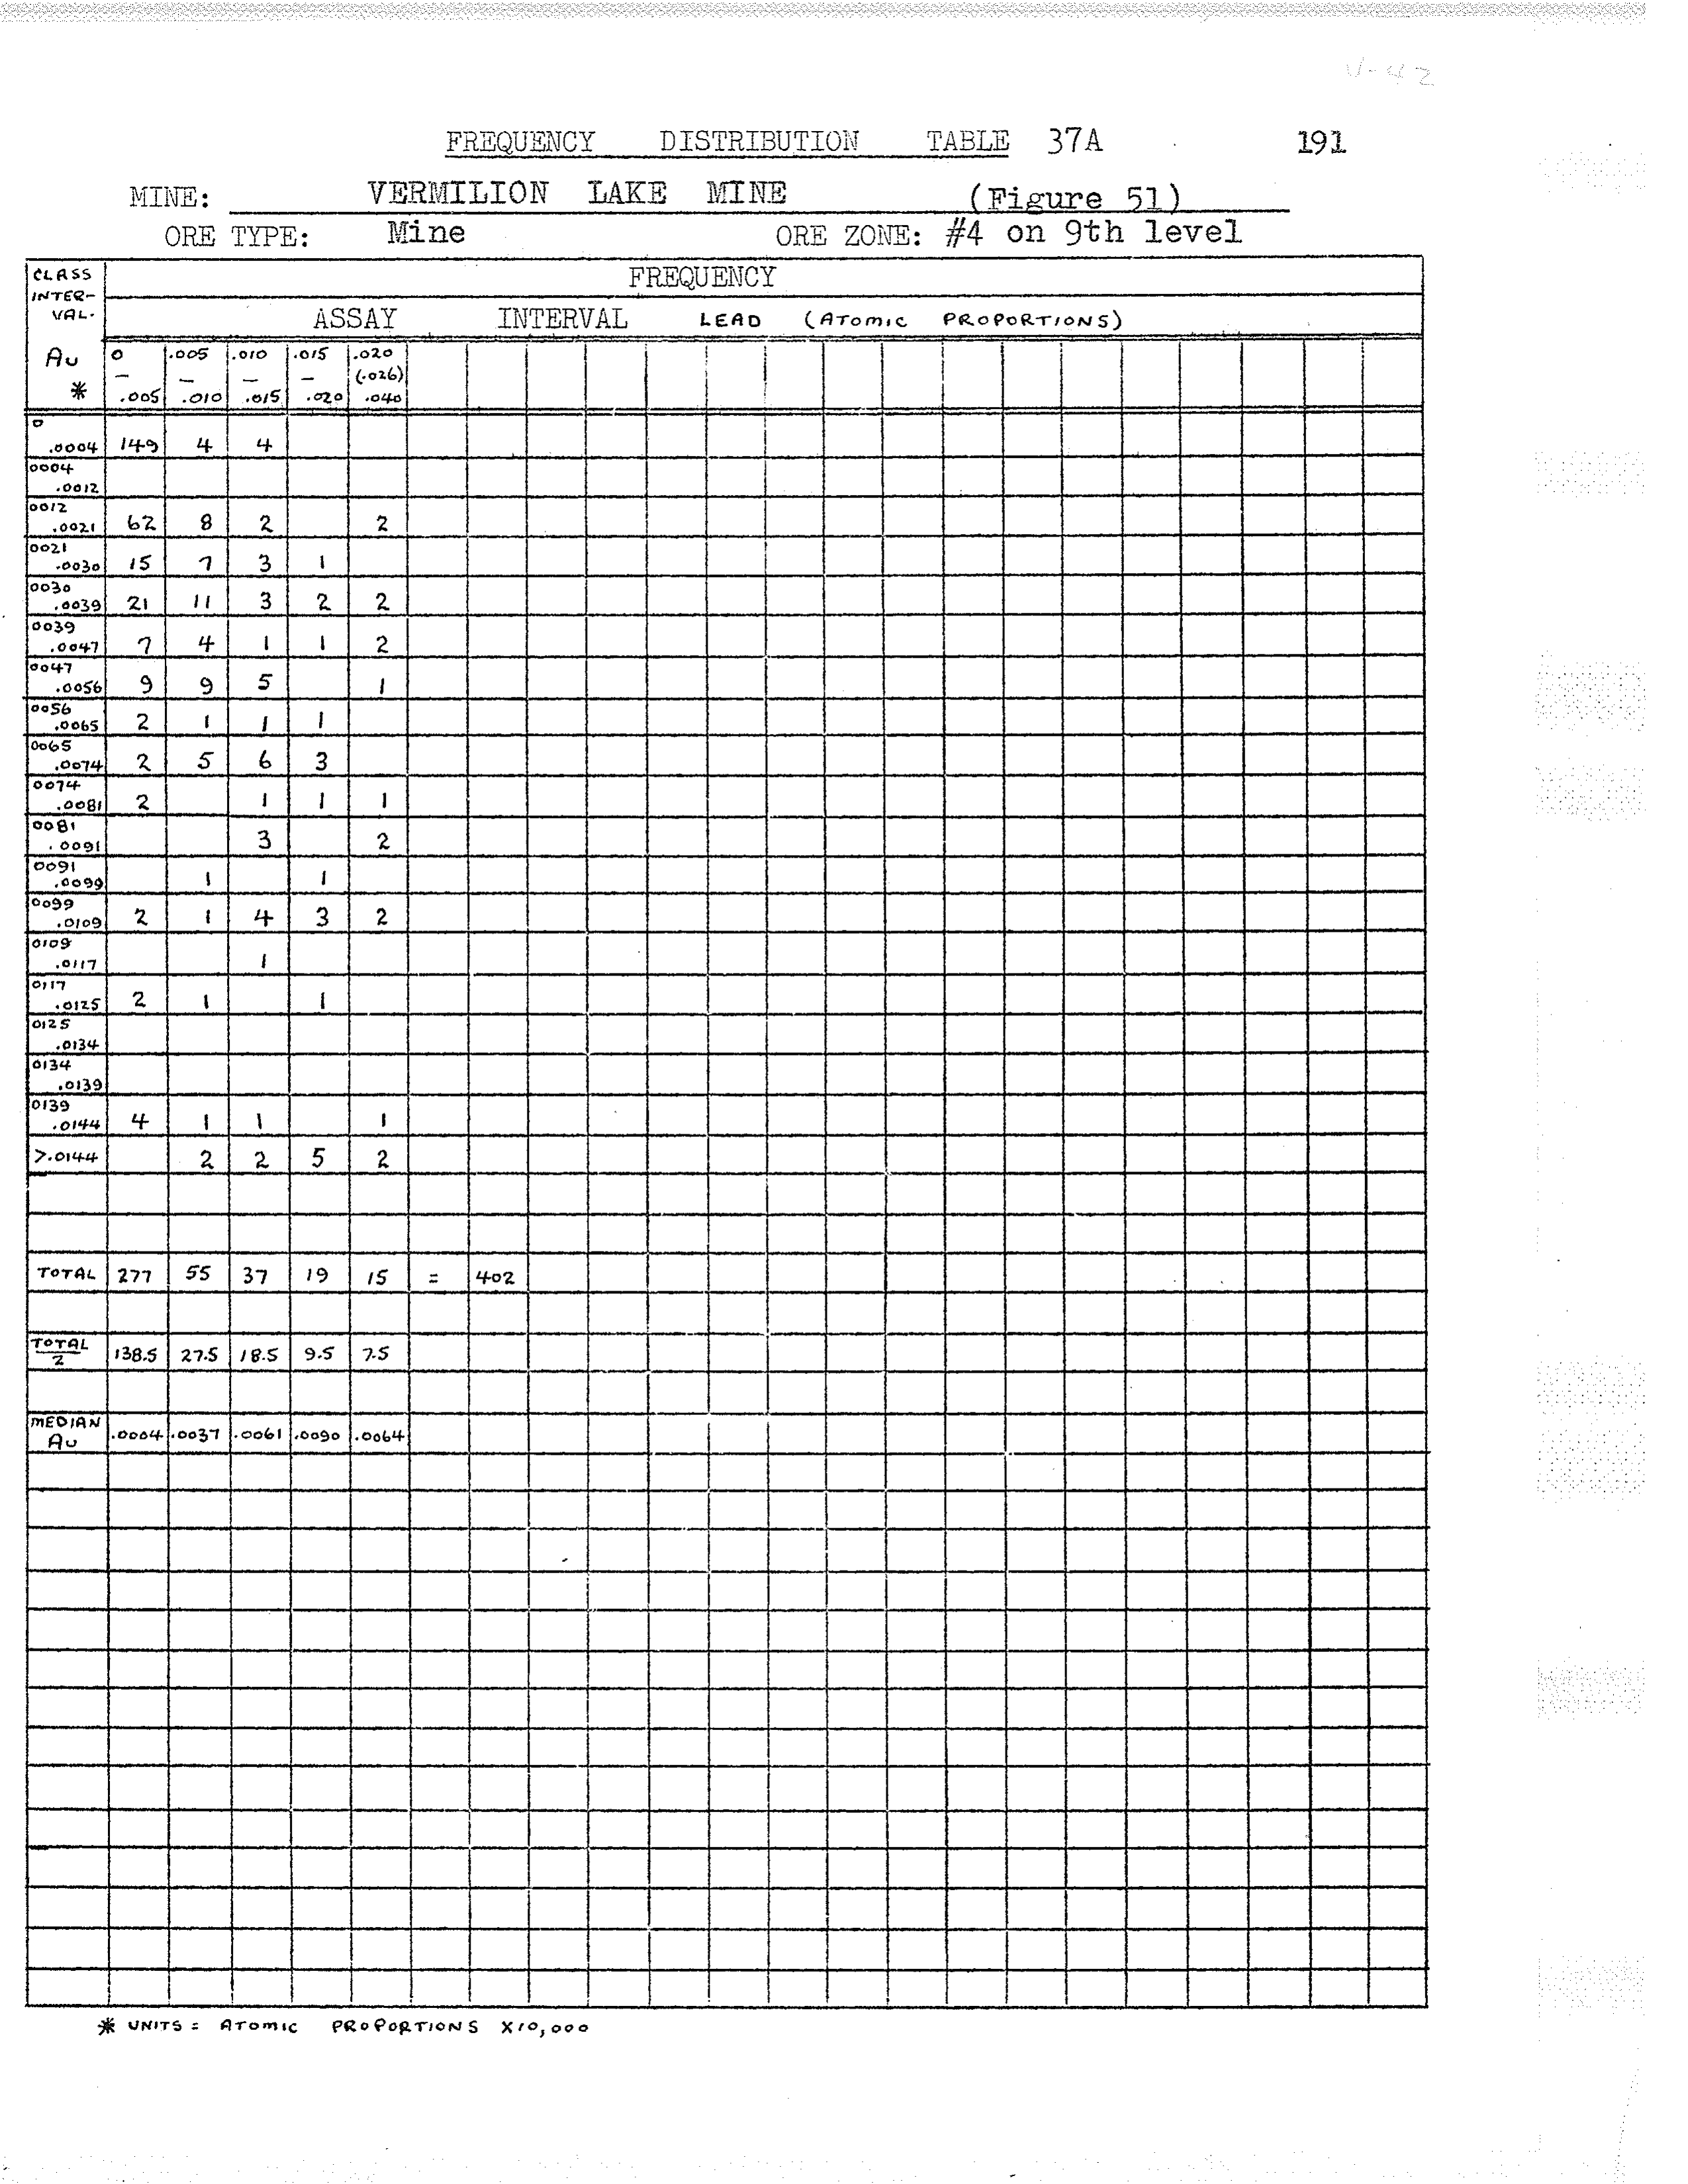 V-42
FREQUENCY DISTRIBUTION TABLE 37A 191
MINE: VERMILION LAKE MINE (Figure 51)
ORE TYPE: Mine ORE ZONE: #4 on 9th level
CLASS INTER-VAL. FREQUENCY
ASSAY INTERVAL LEAD (ATOMIC PROPORTIONS)
Au * 0 – .005 .005 – .010 .010 – .015 .015 – .020 .020 (.026) .040
0 .0004 149 4 4
0004 .0012
0012 .0021 62 8 2 2
0021 .0030 15 7 3 1
0030 .0039 21 11 3 2 2
0039 .0047 7 4 1 1 2
0047 .0056 9 9 5 1
0056 .0065 2 1 1 1
0065 .0074 2 5 6 3
0074 .0081 2 1 1 1
0081 .0091 3 2
0091 .0099 1 1
0099 .0109 2 1 4 3 2
0109 .0117 1
0117 .0125 2 1 1
0125 .0134
0134 .0139
0139 .0144 4 1 1 1
>.0144 2 2 5 2
TOTAL 277 55 37 19 15 = 402
TOTAL 2 138.5 27.5 18.5 9.5 7.5
MEDIAN Au .0004 .0037 .0061 .0090 .0064
* UNITS = ATOMIC PROPORTIONS X10,000